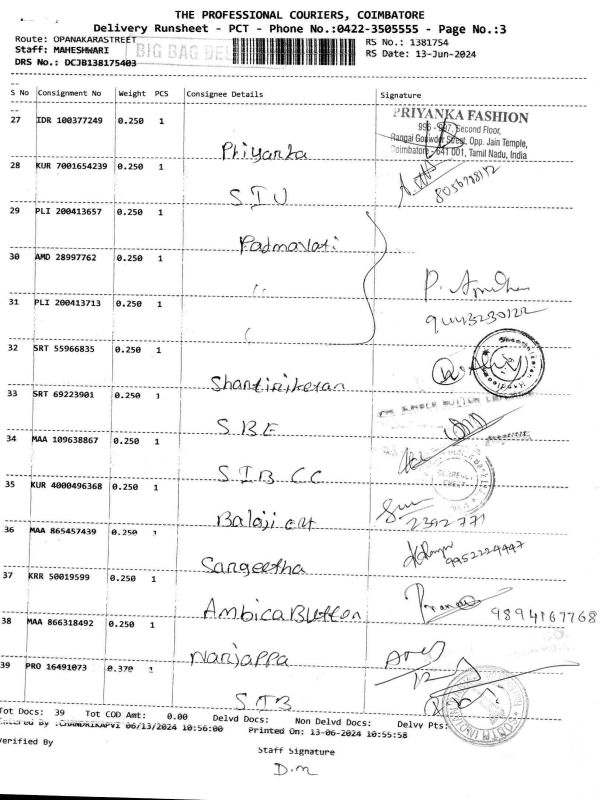 THE PROFESSIONAL COURIERS, COIMBATORE
Delivery Runsheet - PCT - Phone No.:0422-3505555 - Page No.:3
Route: OPANAKARASTREET
RS No.: 1381754
Staff: MAHESHWARI
BIG BAG DEL
RS Date: 13-Jun-2024
DRS No.: DCJB138175403
S No Consignment No Weight PCS Consignee Details Signature
27 IDR 100377249 0.250 1
PRIYANKA FASHION
Second Floor,
Opp. Jain Temple,
641 001, Tamil Nadu, India
Priyanka
28 KUR 7001654239 0.250 1
S I U
29 PLI 200413657 0.250 1
Padmavati
30 AMD 28997762 0.250 1
"
31 PLI 200413713 0.250 1
32 SRT 55966835 0.250 1
Shantiniketan
33 SRT 69223901 0.250 1
S B E
34 MAA 109638867 0.250 1
S I B C C
35 KUR 4000496368 0.250 1
2392771
36 MAA 865457439 0.250 1
Sangeetha
9952224447
37 KRR 50019599 0.250 1
Ambica Button
9894167768
38 MAA 866318492 0.250 1
Nanjappa
39 PRO 16491073 0.370 1
S I B
Tot Docs: 39 Tot COD Amt: 0.00 Delvd Docs: Non Delvd Docs: Delvy Pts:
By :CHANDRIKAPVI 06/13/2024 10:56:00 Printed On: 13-06-2024 10:55:58
Verified By
Staff Signature
D.M